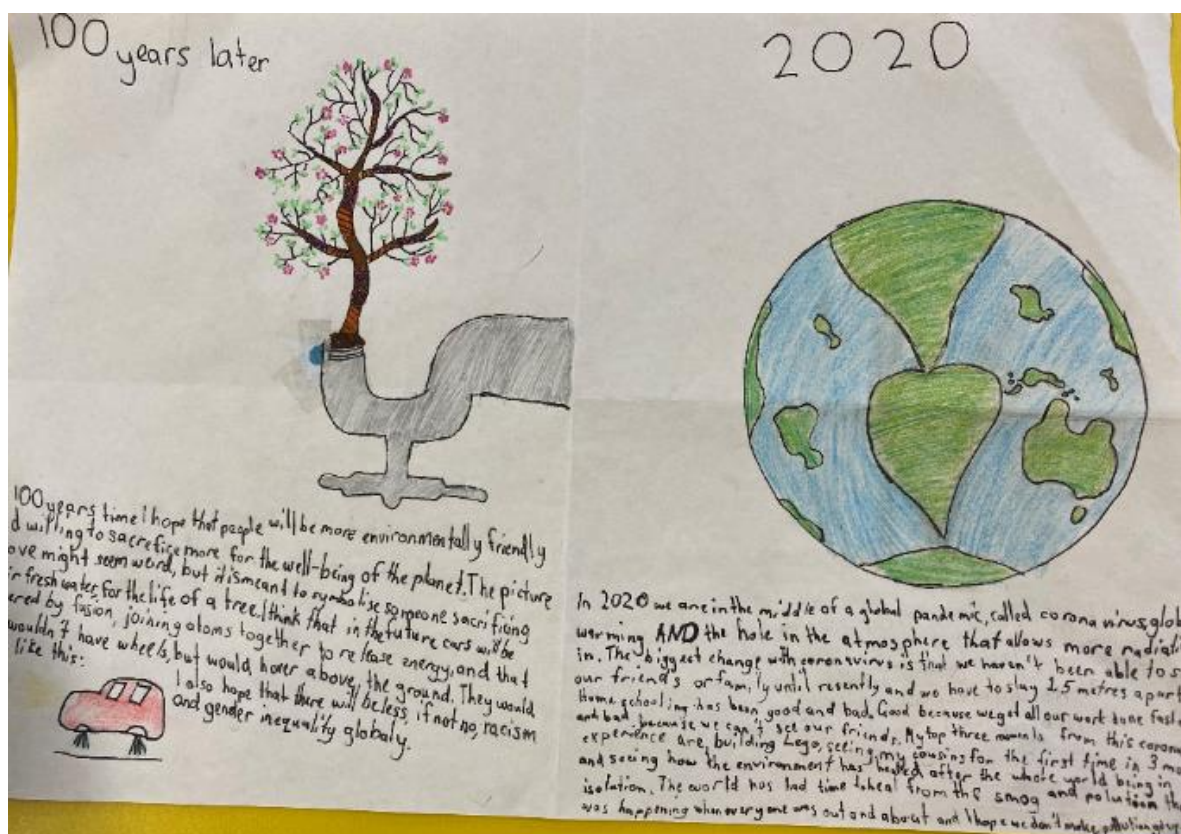 100 years later
100 years time I hope that people will be more environmentally friendly
d willing to sacrefice more for the well-being of the planet. The picture
ove might seem weird, but it is meant to symbolise someone sacrificing
ir fresh water, for the life of a tree. I think that in the future cars will be
ered by fusion, joining atoms together to release energy, and that
wouldn't have wheels, but would hover above the ground. They would
like this:
I also hope that there will be less, if not no, racism
and gender inequality globaly.
2020
In 2020 we are in the middle of a global pandemic, called corona virus, glob
warming AND the hole in the atmosphere that allows more radiati
in. The biggest change with coronavirus is that we haven't been able to s
our friends or family until recently and we have to stay 1.5 metres apart
Home schooling has been good and bad. Good because we got all our work done fast
and bad because we can't see our friends. My top three moments from this corona
experience are, building Lego, seeing my cousins for the first time in 3 mo
and seeing how the environment has healed after the whole world being in
isolation. The world has had time to heal from the smog and polution th
was happening when every one was out and about and I hope we don't make pollution